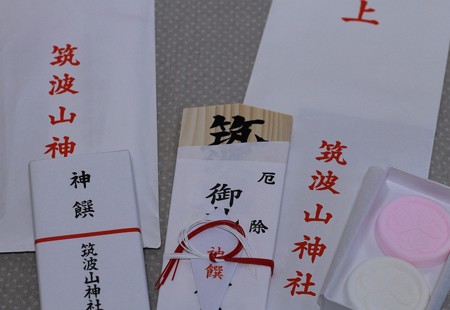 筑波山神
上
筑波山神社
神饌
筑波山神社
筑
厄除
御
神饌